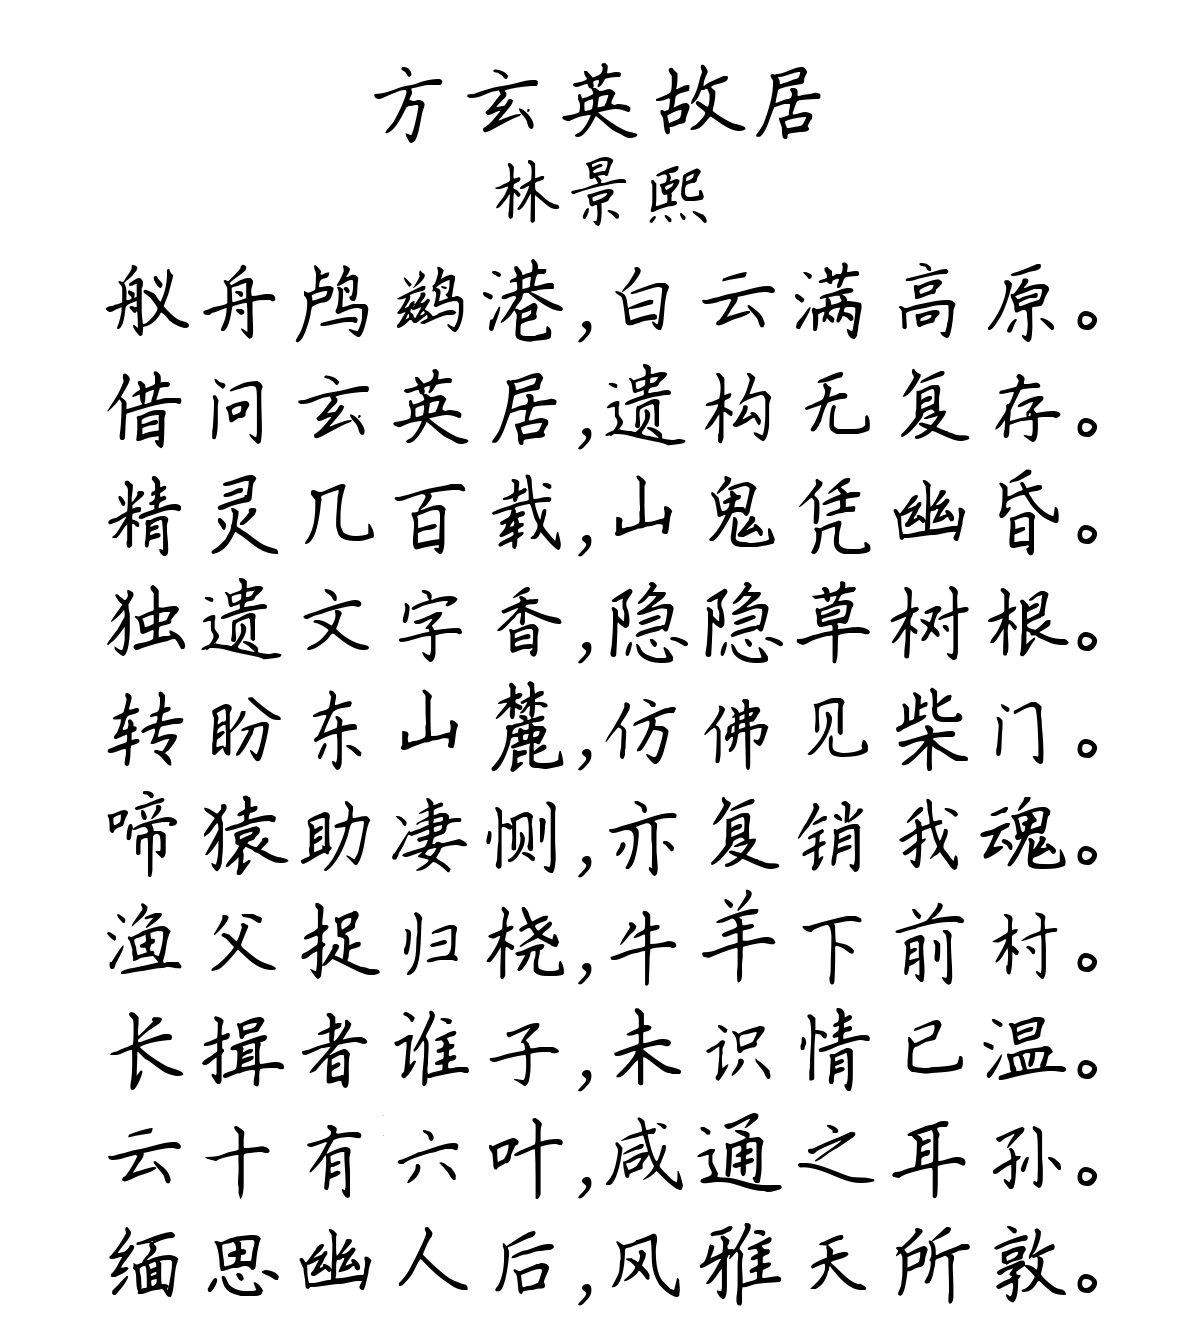 方玄英故居
林景熙
舣舟鸬鹚港,白云满高原。
借问玄英居,遗构无复存。
精灵几百载,山鬼凭幽昏。
独遗文字香,隐隐草树根。
转盼东山麓,仿佛见柴门。
啼猿助凄恻,亦复销我魂。
渔父捉归桡,牛羊下前村。
长揖者谁子,未识情已温。
云十有六叶,咸通之耳孙。
缅思幽人后,风雅天所敦。